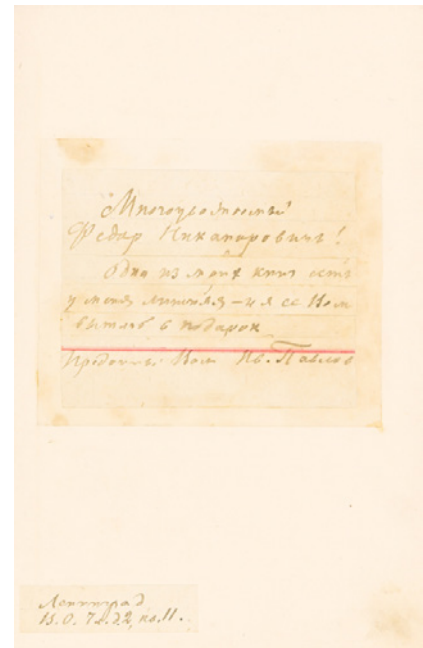 Многоуважаемый
Федар Никанарович!
Одна из моих книг есть
у меня лишняя – и я ее Вам
в подарок
Преданный Вам Ив. Павлов
Ленинград
15.0. 7 л. д. 2, кв. 11.